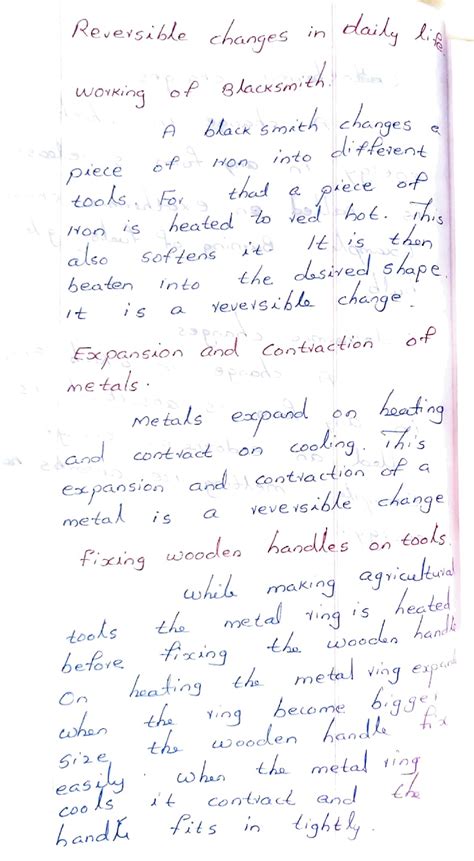 Reversible changes in daily life.
working of Blacksmith.
A black smith changes a
piece of iron into different
tools. For thad a piece of
iron is heated to red hot. This
also softens it. It is then
beaten into the desired shape.
It is a reversible change.
Expansion and contraction of
metals.
Metals expand on heating
and contract on cooling. This
expansion and contraction of a
metal is a reversible change
fixing wooden handles on tools.
while making agricultural
tools the metal ring is heated
before fixing the wooden handle
On heating the metal ring expand
when the ring become bigger
size the wooden handle fix
easily. when the metal ring
cools it contract and the
handle fits in tightly.